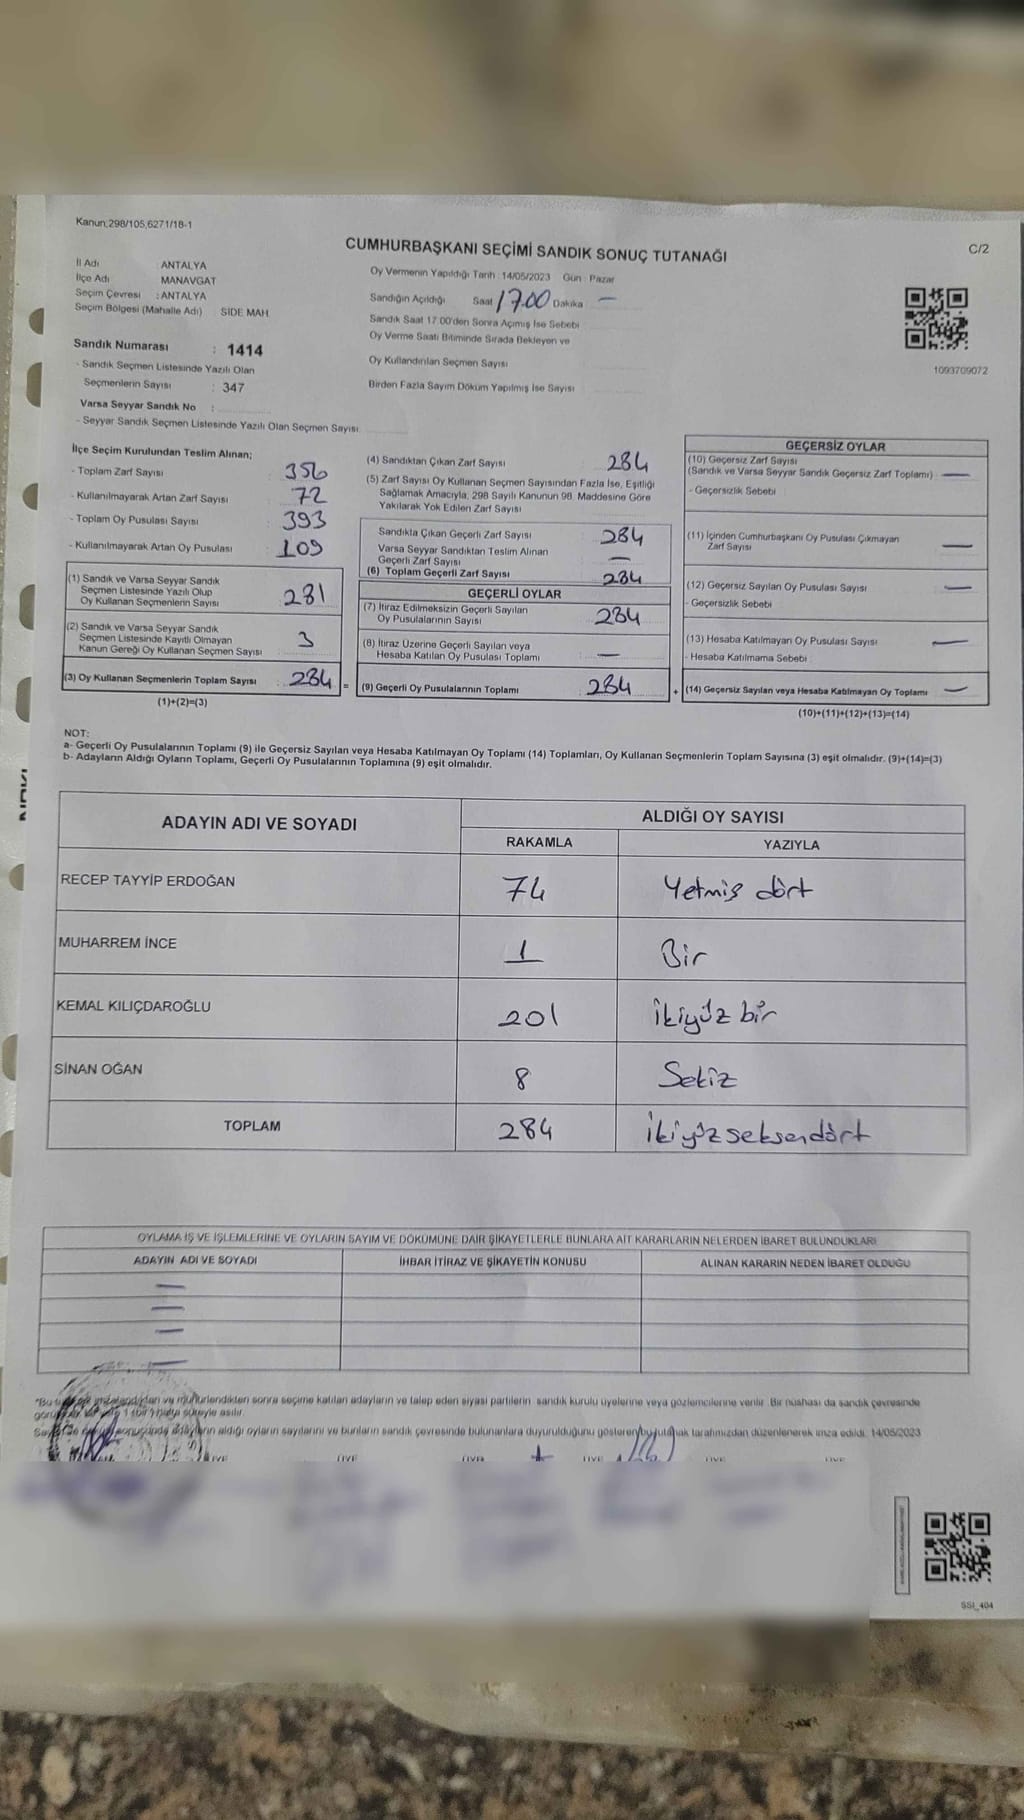 Kanun;298/105,6271/18-1
C/2
CUMHURBAŞKANI SEÇİMİ SANDIK SONUÇ TUTANAĞI
İl Adı : ANTALYA
İlçe Adı : MANAVGAT
Seçim Çevresi : ANTALYA
Seçim Bölgesi (Mahalle Adı) SİDE MAH.
Sandık Numarası : 1414
- Sandık Seçmen Listesinde Yazılı Olan
Seçmenlerin Sayısı : 347
Varsa Seyyar Sandık No :
- Seyyar Sandık Seçmen Listesinde Yazılı Olan Seçmen Sayısı:
Oy Vermenin Yapıldığı Tarih : 14/05/2023 Gün : Pazar
Sandığın Açıldığı Saat 17.00 Dakika —
Sandık Saat 17:00'den Sonra Açımış İse Sebebi
Oy Verme Saati Bitiminde Sırada Bekleyen ve
Oy Kullandırılan Seçmen Sayısı
Birden Fazla Sayım Döküm Yapılmış İse Sayısı
1093709072
İlçe Seçim Kurulundan Teslim Alınan;
- Toplam Zarf Sayısı : 356
- Kullanılmayarak Artan Zarf Sayısı : 72
- Toplam Oy Pusulası Sayısı : 393
- Kullanılmayarak Artan Oy Pusulası : 109
(1) Sandık ve Varsa Seyyar Sandık
Seçmen Listesinde Yazılı Olup
Oy Kullanan Seçmenlerin Sayısı : 281
(2) Sandık ve Varsa Seyyar Sandık
Seçmen Listesinde Kayıtlı Olmayan
Kanun Gereği Oy Kullanan Seçmen Sayısı : 3
(3) Oy Kullanan Seçmenlerin Toplam Sayısı : 284 =
(1)+(2)=(3)
(4) Sandıktan Çıkan Zarf Sayısı : 284
(5) Zarf Sayısı Oy Kullanan Seçmen Sayısından Fazla İse, Eşitliği
Sağlamak Amacıyla, 298 Sayılı Kanunun 98. Maddesine Göre
Yakılarak Yok Edilen Zarf Sayısı
Sandıkta Çıkan Geçerli Zarf Sayısı : 284
Varsa Seyyar Sandıktan Teslim Alınan
Geçerli Zarf Sayısı : —
(6) Toplam Geçerli Zarf Sayısı : 284
GEÇERLİ OYLAR
(7) İtiraz Edilmeksizin Geçerli Sayılan
Oy Pusulalarının Sayısı : 284
(8) İtiraz Üzerine Geçerli Sayılan veya
Hesaba Katılan Oy Pusulası Toplamı : —
(9) Geçerli Oy Pusulalarının Toplamı : 284 +
GEÇERSİZ OYLAR
(10) Geçersiz Zarf Sayısı
(Sandık ve Varsa Seyyar Sandık Geçersiz Zarf Toplamı) : —
- Geçersizlik Sebebi :
(11) İçinden Cumhurbaşkanı Oy Pusulası Çıkmayan
Zarf Sayısı : —
(12) Geçersiz Sayılan Oy Pusulası Sayısı : —
- Geçersizlik Sebebi
(13) Hesaba Katılmayan Oy Pusulası Sayısı : —
- Hesaba Katılmama Sebebi :
(14) Geçersiz Sayılan veya Hesaba Katılmayan Oy Toplamı : —
(10)+(11)+(12)+(13)=(14)
NOT:
a- Geçerli Oy Pusulalarının Toplamı (9) ile Geçersiz Sayılan veya Hesaba Katılmayan Oy Toplamı (14) Toplamları, Oy Kullanan Seçmenlerin Toplam Sayısına (3) eşit olmalıdır. (9)+(14)=(3)
b- Adayların Aldığı Oyların Toplamı, Geçerli Oy Pusulalarının Toplamına (9) eşit olmalıdır.
ADAYIN ADI VE SOYADI ALDIĞI OY SAYISI
RAKAMLA YAZIYLA
RECEP TAYYİP ERDOĞAN 74 Yetmiş dört
MUHARREM İNCE 1 Bir
KEMAL KILIÇDAROĞLU 201 İkiyüz bir
SİNAN OĞAN 8 Sekiz
TOPLAM 284 İkiyüzseksendört
OYLAMA İŞ VE İŞLEMLERİNE VE OYLARIN SAYIM VE DÖKÜMÜNE DAİR ŞİKAYETLERLE BUNLARA AİT KARARLARIN NELERDEN İBARET BULUNDUKLARI
ADAYIN ADI VE SOYADI İHBAR İTİRAZ VE ŞİKAYETİN KONUSU ALINAN KARARIN NEDEN İBARET OLDUĞU
—
—
—
—
mühürlendikten sonra seçime katılan adayların ve talep eden siyasi partilerin sandık kurulu üyelerine veya gözlemcilerine verilir. Bir nüshası da sandık çevresinde
süreyle asılır.
adayların aldığı oyların sayılarını ve bunların sandık çevresinde bulunanlara duyurulduğunu gösteren bu tutanak tarafımızdan düzenlenerek imza edildi. 14/05/2023
ÜYE ÜYE ÜYE ÜYE ÜYE
SSI_404